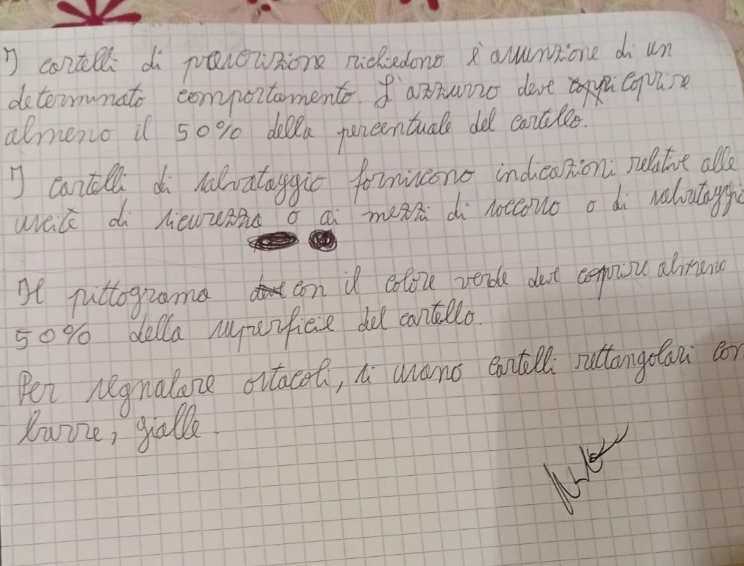 I cartelli di prescrizione richiedono l'assunzione di un
determinato comportamento. L'azzurro deve coprire
almeno il 50% della percentuale del cartello.
I cartelli di salvataggio forniscono indicazioni relative alle
uscite di sicurezza o ai mezzi di soccorso o di salvataggio
Il pittogramo con il colore verde deve coprire almeno
50% della superficie del cartello.
Per segnalare ostacoli, si usano cartelli rettangolari con
barre, gialle.